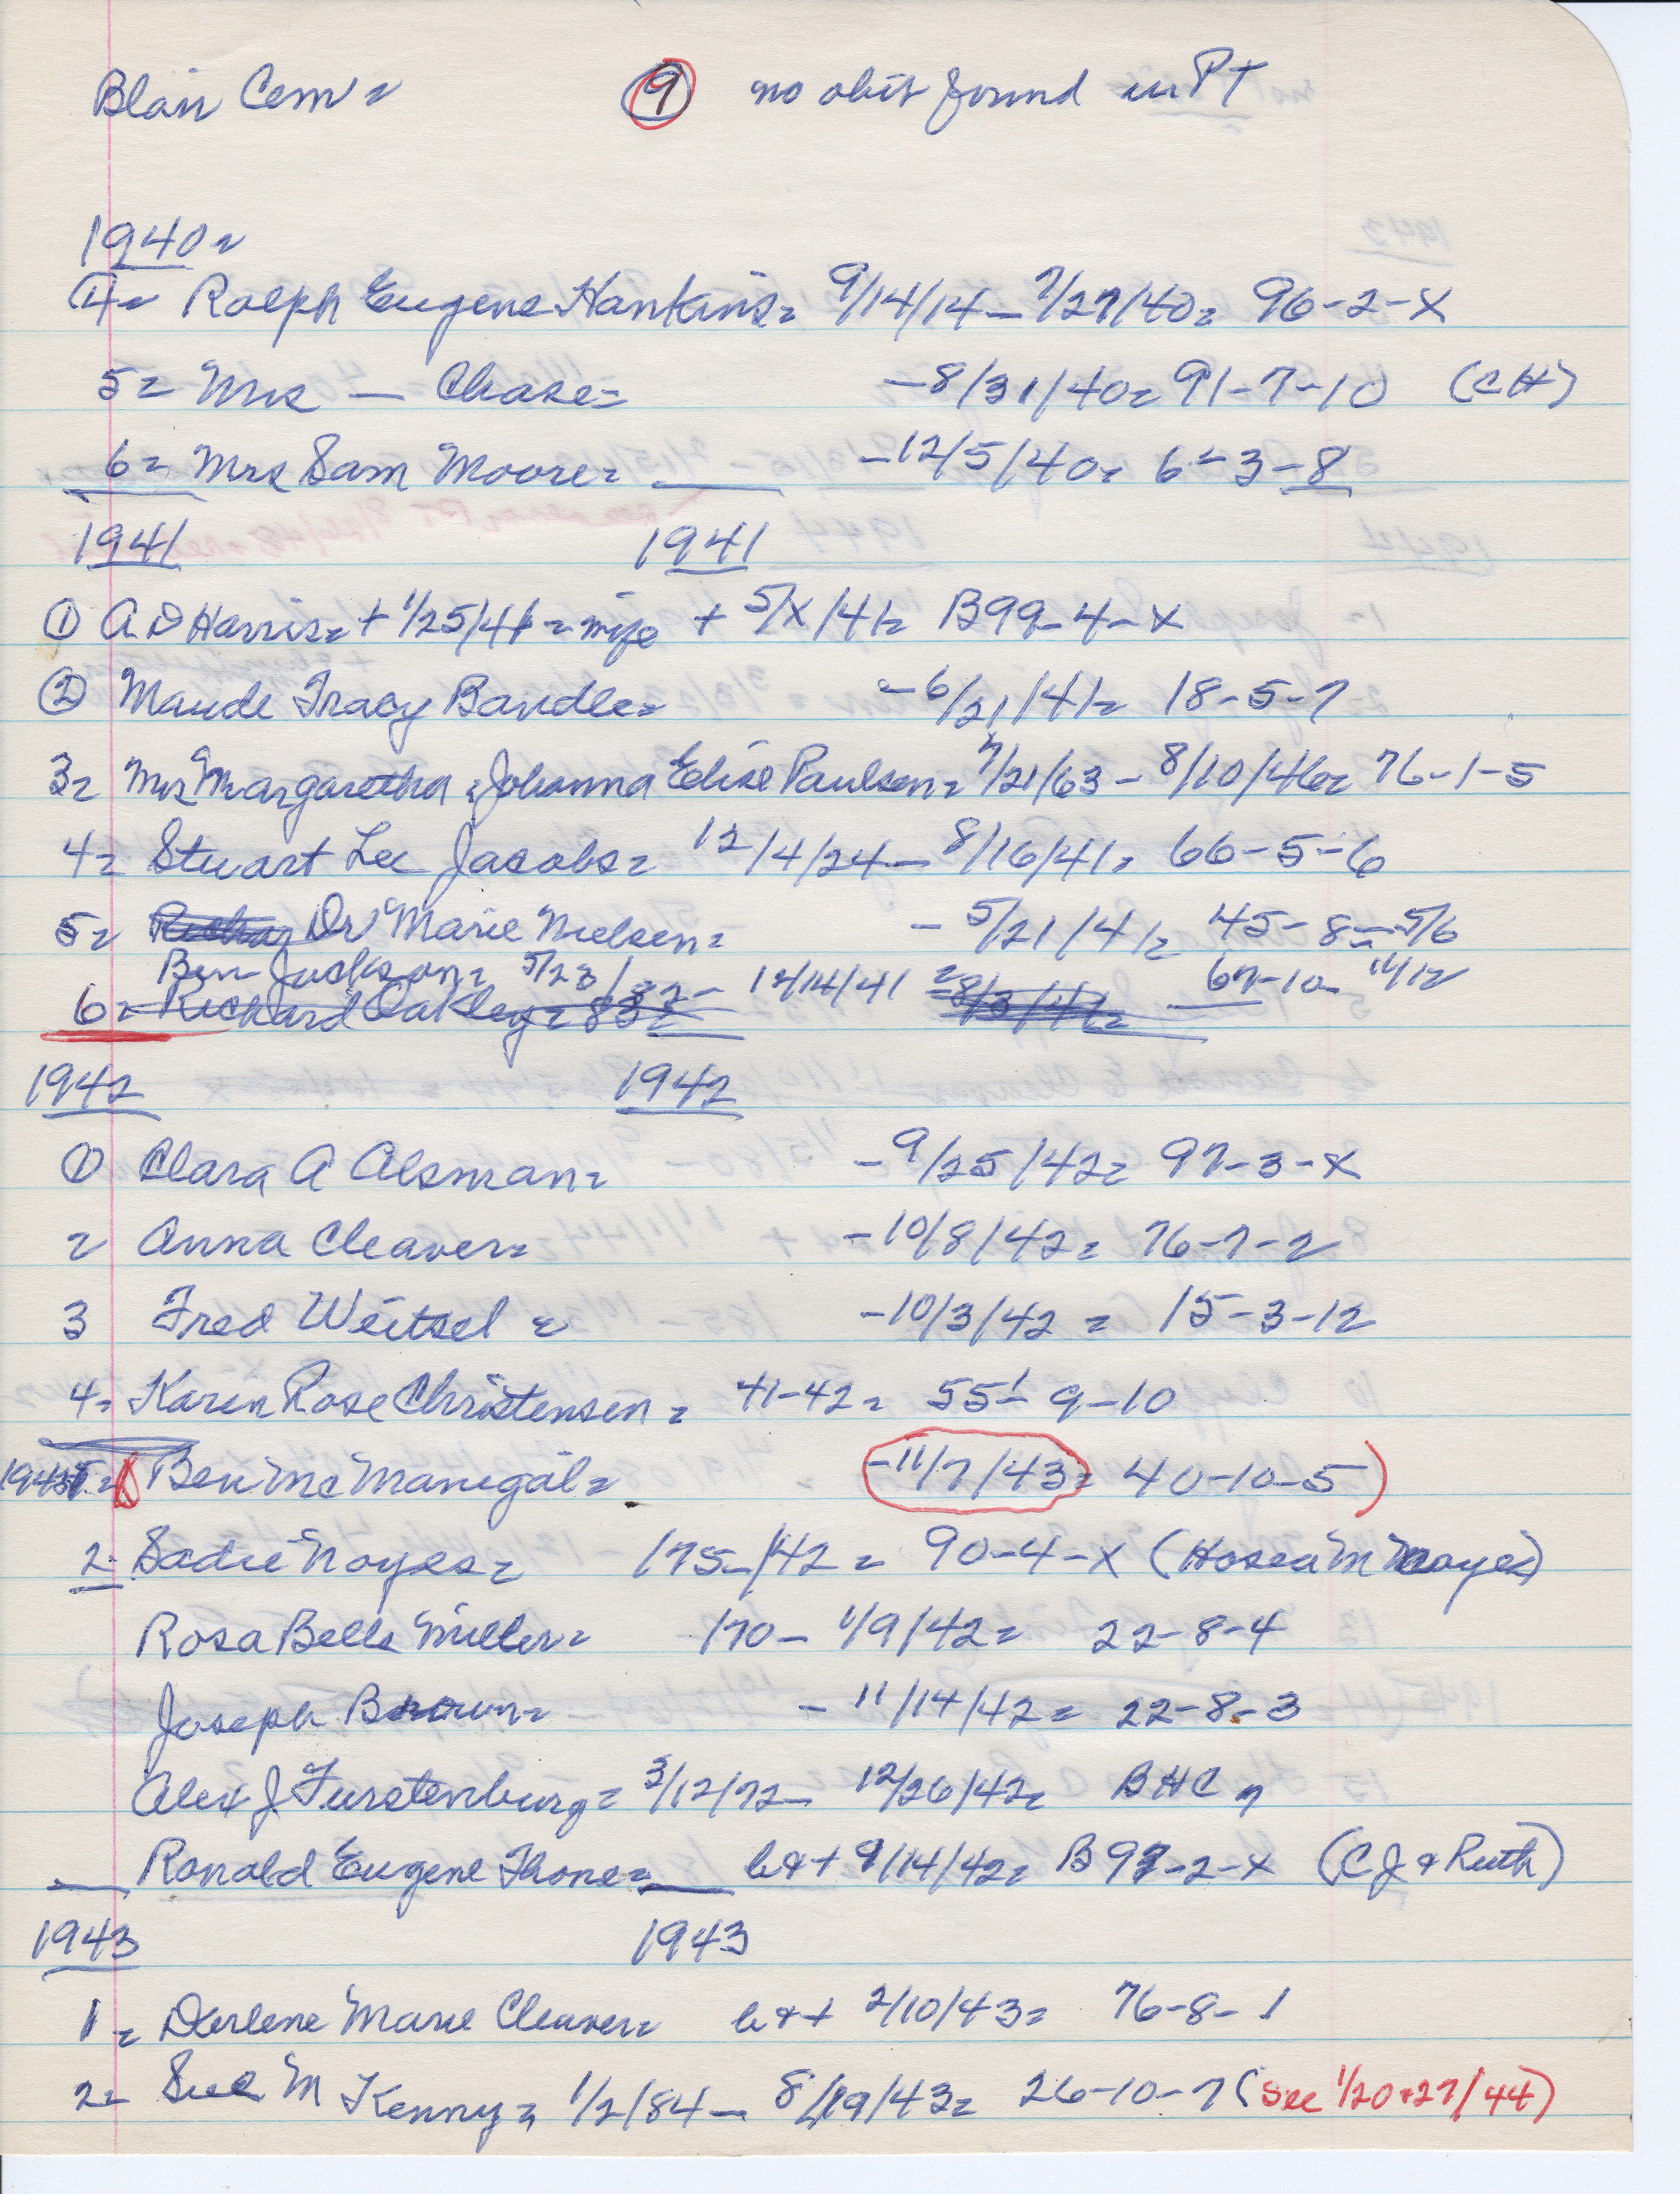 Blair Cem= 9 no obit found in PT
1940=
4= Ralph Eugene Hankins= 9/14/14- 7/27/40= 96-2-X
5= Mrs — Chase= -8/31/40= 91-7-10 (CH)
6= Mrs Sam Moore= -12/5/40= 6-3-8
1941 1941
1 A D Harris= + 1/25/41= wife + 5/X/41= B99-4-X
2 Maude Tracy Bandle= -6/21/41= 18-5-7
3= Mrs Margaretha Johanna Elise Paulsen= 7/21/63- 8/10/40= 76-1-5
4= Stuart Lee Jacobs= 12/4/24- 8/16/41= 66-5-6
5= Dr Marie Nielsen= - 5/21/41= 45-8-5/6
Ben Jackson= 5/23/ - 12/14/41 = 67-10- 11/12
6= Richard Oakley=
1942 1942
1 Clara A Alsman= -9/25/42= 97-3-X
2 Anna Cleaver= -10/8/42= 76-7-2
3 Fred Weitsel = -10/3/42 = 15-3-12
4= Karen Rose Christensen= 41-42= 55- 9-10
1943 Ben McManigal= -11/7/43= 40-10-5)
2= Sadie Noyes= 1875-/42= 90-4-X (Hosea M Noyes)
Rosa Belle Miller= 1870- 1/9/42= 22-8-4
Joseph Brown= - 11/14/42= 22-8-3
Alex J Furstenburg= 3/12/72- 12/26/42= BHC
Ronald Eugene Thone= b&+ 9/14/42= B97-2-X (CJ & Ruth)
1943 1943
1= Darlene Marie Cleaver= b&+ 2/10/43= 76-8-1
2= Sue M Kenny= 1/2/84- 8/19/43= 26-10-7 (see 1/20+27/44)